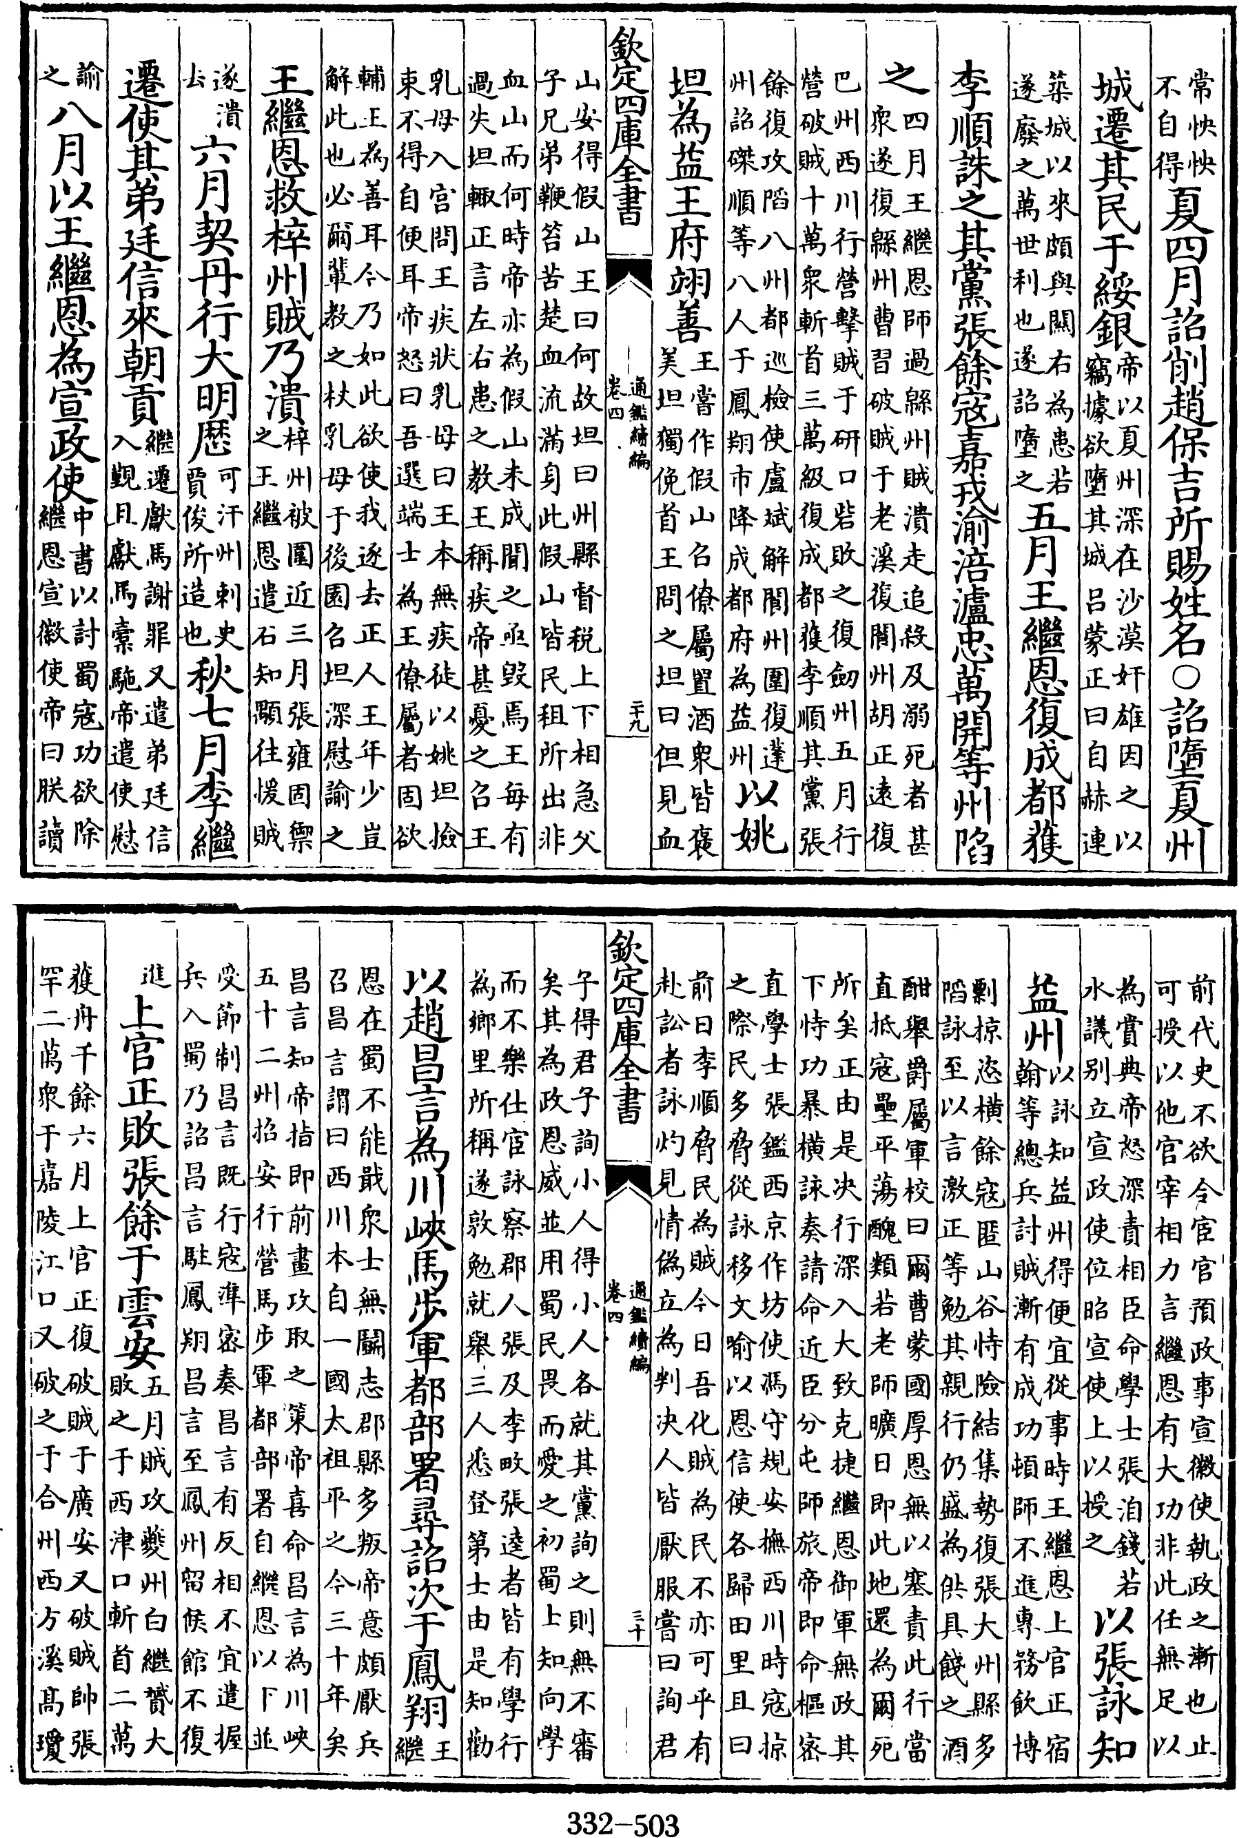 常怏怏不自得夏四月詔削趙保吉所賜姓名○詔隳夏州
城遷其民于綏銀帝以夏州深在沙漠奸雄因之以竊據欲隳其城吕蒙正曰自赫連
築城以來頗與關右為患若遂廢之萬世利也遂詔隳之五月王繼恩復成都獲
李順誅之其黨張餘寇嘉戎渝涪瀘忠萬開等州陷
之四月王繼恩師過緜州賊潰走追殺及溺死者甚衆遂復緜州曹習破賊于老溪復閬州胡正遠復
巴州西川行營擊賊于研口砦敗之復劒州五月行營破賊十萬衆斬首三萬級復成都獲李順其黨張
餘復攻䧟八州都巡檢使盧斌解閬州圍復蓬州詔磔順等八人于鳳翔市降成都府為益州以姚
坦為益王府翊善王嘗作假山召僚屬置酒衆皆褒美坦獨俛首王問之坦曰但見血
欽定四庫全書 通鑑續編 卷四 二十九
山安得假山王曰何故坦曰州縣督税上下相急父子兄弟鞭笞苦楚血流滿身此假山皆民租所出非
血山而何時帝亦為假山未成聞之亟毁焉王每有過失坦輒正言左右患之教王稱疾帝甚憂之召王
乳母入宫問王疾狀乳母曰王本無疾徒以姚坦撿束不得自便耳帝怒曰吾選端士為王僚屬者固欲
輔王為善耳今乃如此欲使我逐去正人王年少豈解此也必爾輩教之杖乳母于後園召坦深慰諭之
王繼恩救梓州賊乃潰梓州被圍近三月張雍固禦之王繼恩遣石知顒往援賊
遂潰去六月契丹行大明厯可汗州刺史賈俊所造也秋七月李繼
遷使其弟廷信來朝貢繼遷獻馬謝罪又遣弟廷信入覲且獻馬槖駞帝遣使慰
諭之八月以王繼恩為宣政使中書以討蜀寇功欲除繼恩宣徽使帝曰朕讀
前代史不欲令宦官預政事宣徽使執政之漸也止可授以他官宰相力言繼恩有大功非此任無足以
為賞典帝怒深責相臣命學士張洎錢若水議别立宣政使位昭宣使上以授之以張詠知
益州以詠知益州得便宜從事時王繼恩上官正宿翰等總兵討賊漸有成功頓師不進專務飲博
剽掠恣横餘寇匿山谷恃險結集勢復張大州縣多陷詠至以言激正等勉其親行仍盛為供具餞之酒
酣舉爵屬軍校曰爾曹蒙國厚恩無以塞責此行當直抵寇壘平蕩醜類若老師曠日即此地還為爾死
所矣正由是决行深入大致克捷繼恩御軍無政其下恃功暴横詠奏請命近臣分屯師旅帝即命樞密
直學士張鑑西京作坊使馮守規安撫西川時寇掠之際民多脅從詠移文喻以恩信使各歸田里且曰
前日李順脅民為賊今日吾化賊為民不亦可乎有赴訟者詠灼見情偽立為判决人皆厭服嘗曰詢君
欽定四庫全書 通鑑續編 卷四 三十
子得君子詢小人得小人各就其黨詢之則無不審矣其為政恩威並用蜀民畏而愛之初蜀士知向學
而不樂仕宦詠察郡人張及李畋張逵者皆有學行為鄉里所稱遂敦勉就舉三人悉登第士由是知勸
以趙昌言為川峽馬步軍都部署尋詔次于鳳翔王繼
恩在蜀不能戢衆士無鬬志郡縣多叛帝意頗厭兵召昌言謂曰西川本自一國太祖平之今三十年矣
昌言知帝指即前畫攻取之策帝喜命昌言為川峽五十二州招安行營馬步軍都部署自繼恩以下並
受節制昌言既行寇準密奏昌言有反相不宜遣握兵入蜀乃詔昌言駐鳳翔昌言至鳳州留候館不復
進上官正敗張餘于雲安五月賊攻夔州白繼贇大敗之于西津口斬首二萬
獲舟千餘六月上官正復破賊于廣安又破賊帥張罕二萬衆于嘉陵江口又破之于合州西方溪髙瓊
332-503